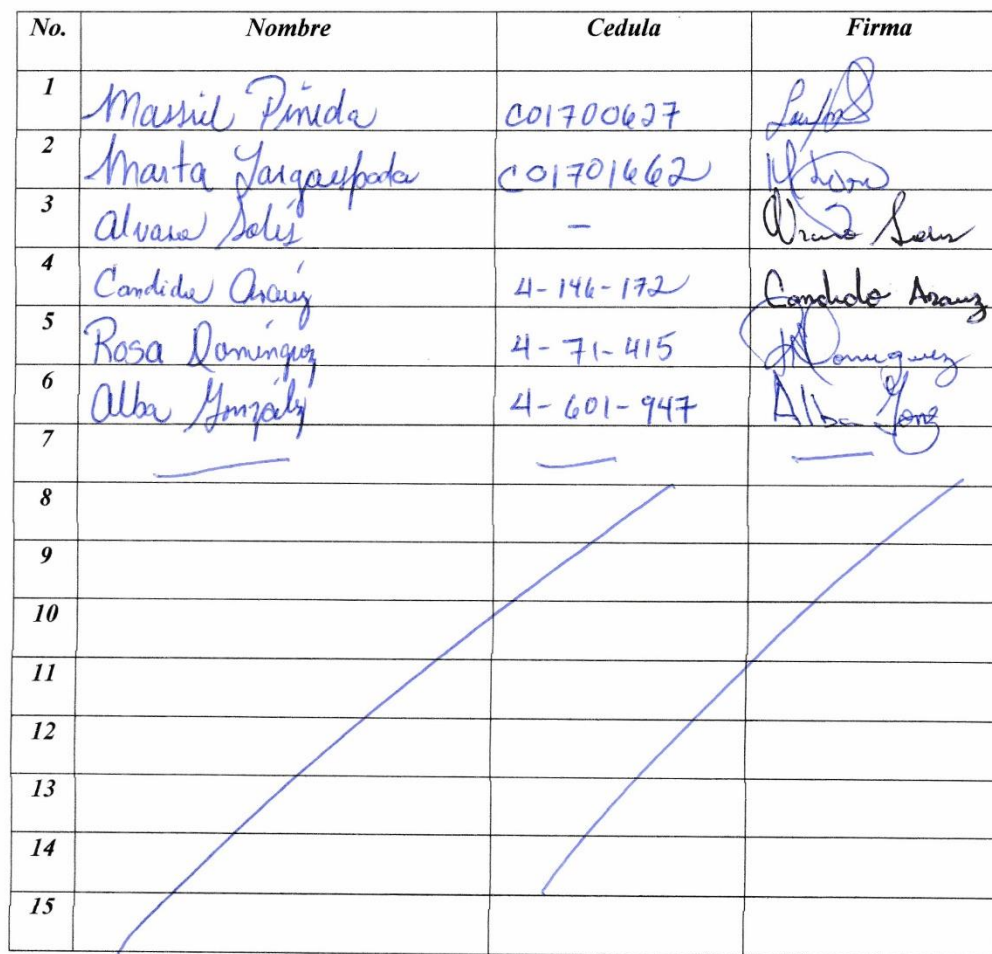 No. Nombre Cedula Firma
1 Massiel Pineda C01700627
2 Marta Largaespada C01701662
3 Alvaro Solís –
4 Candido Araúz 4-146-172 Candido Arauz
5 Rosa Domínguez 4-71-415 Domínguez
6 Alba González 4-601-947 Alba Gonz
7
8
9
10
11
12
13
14
15